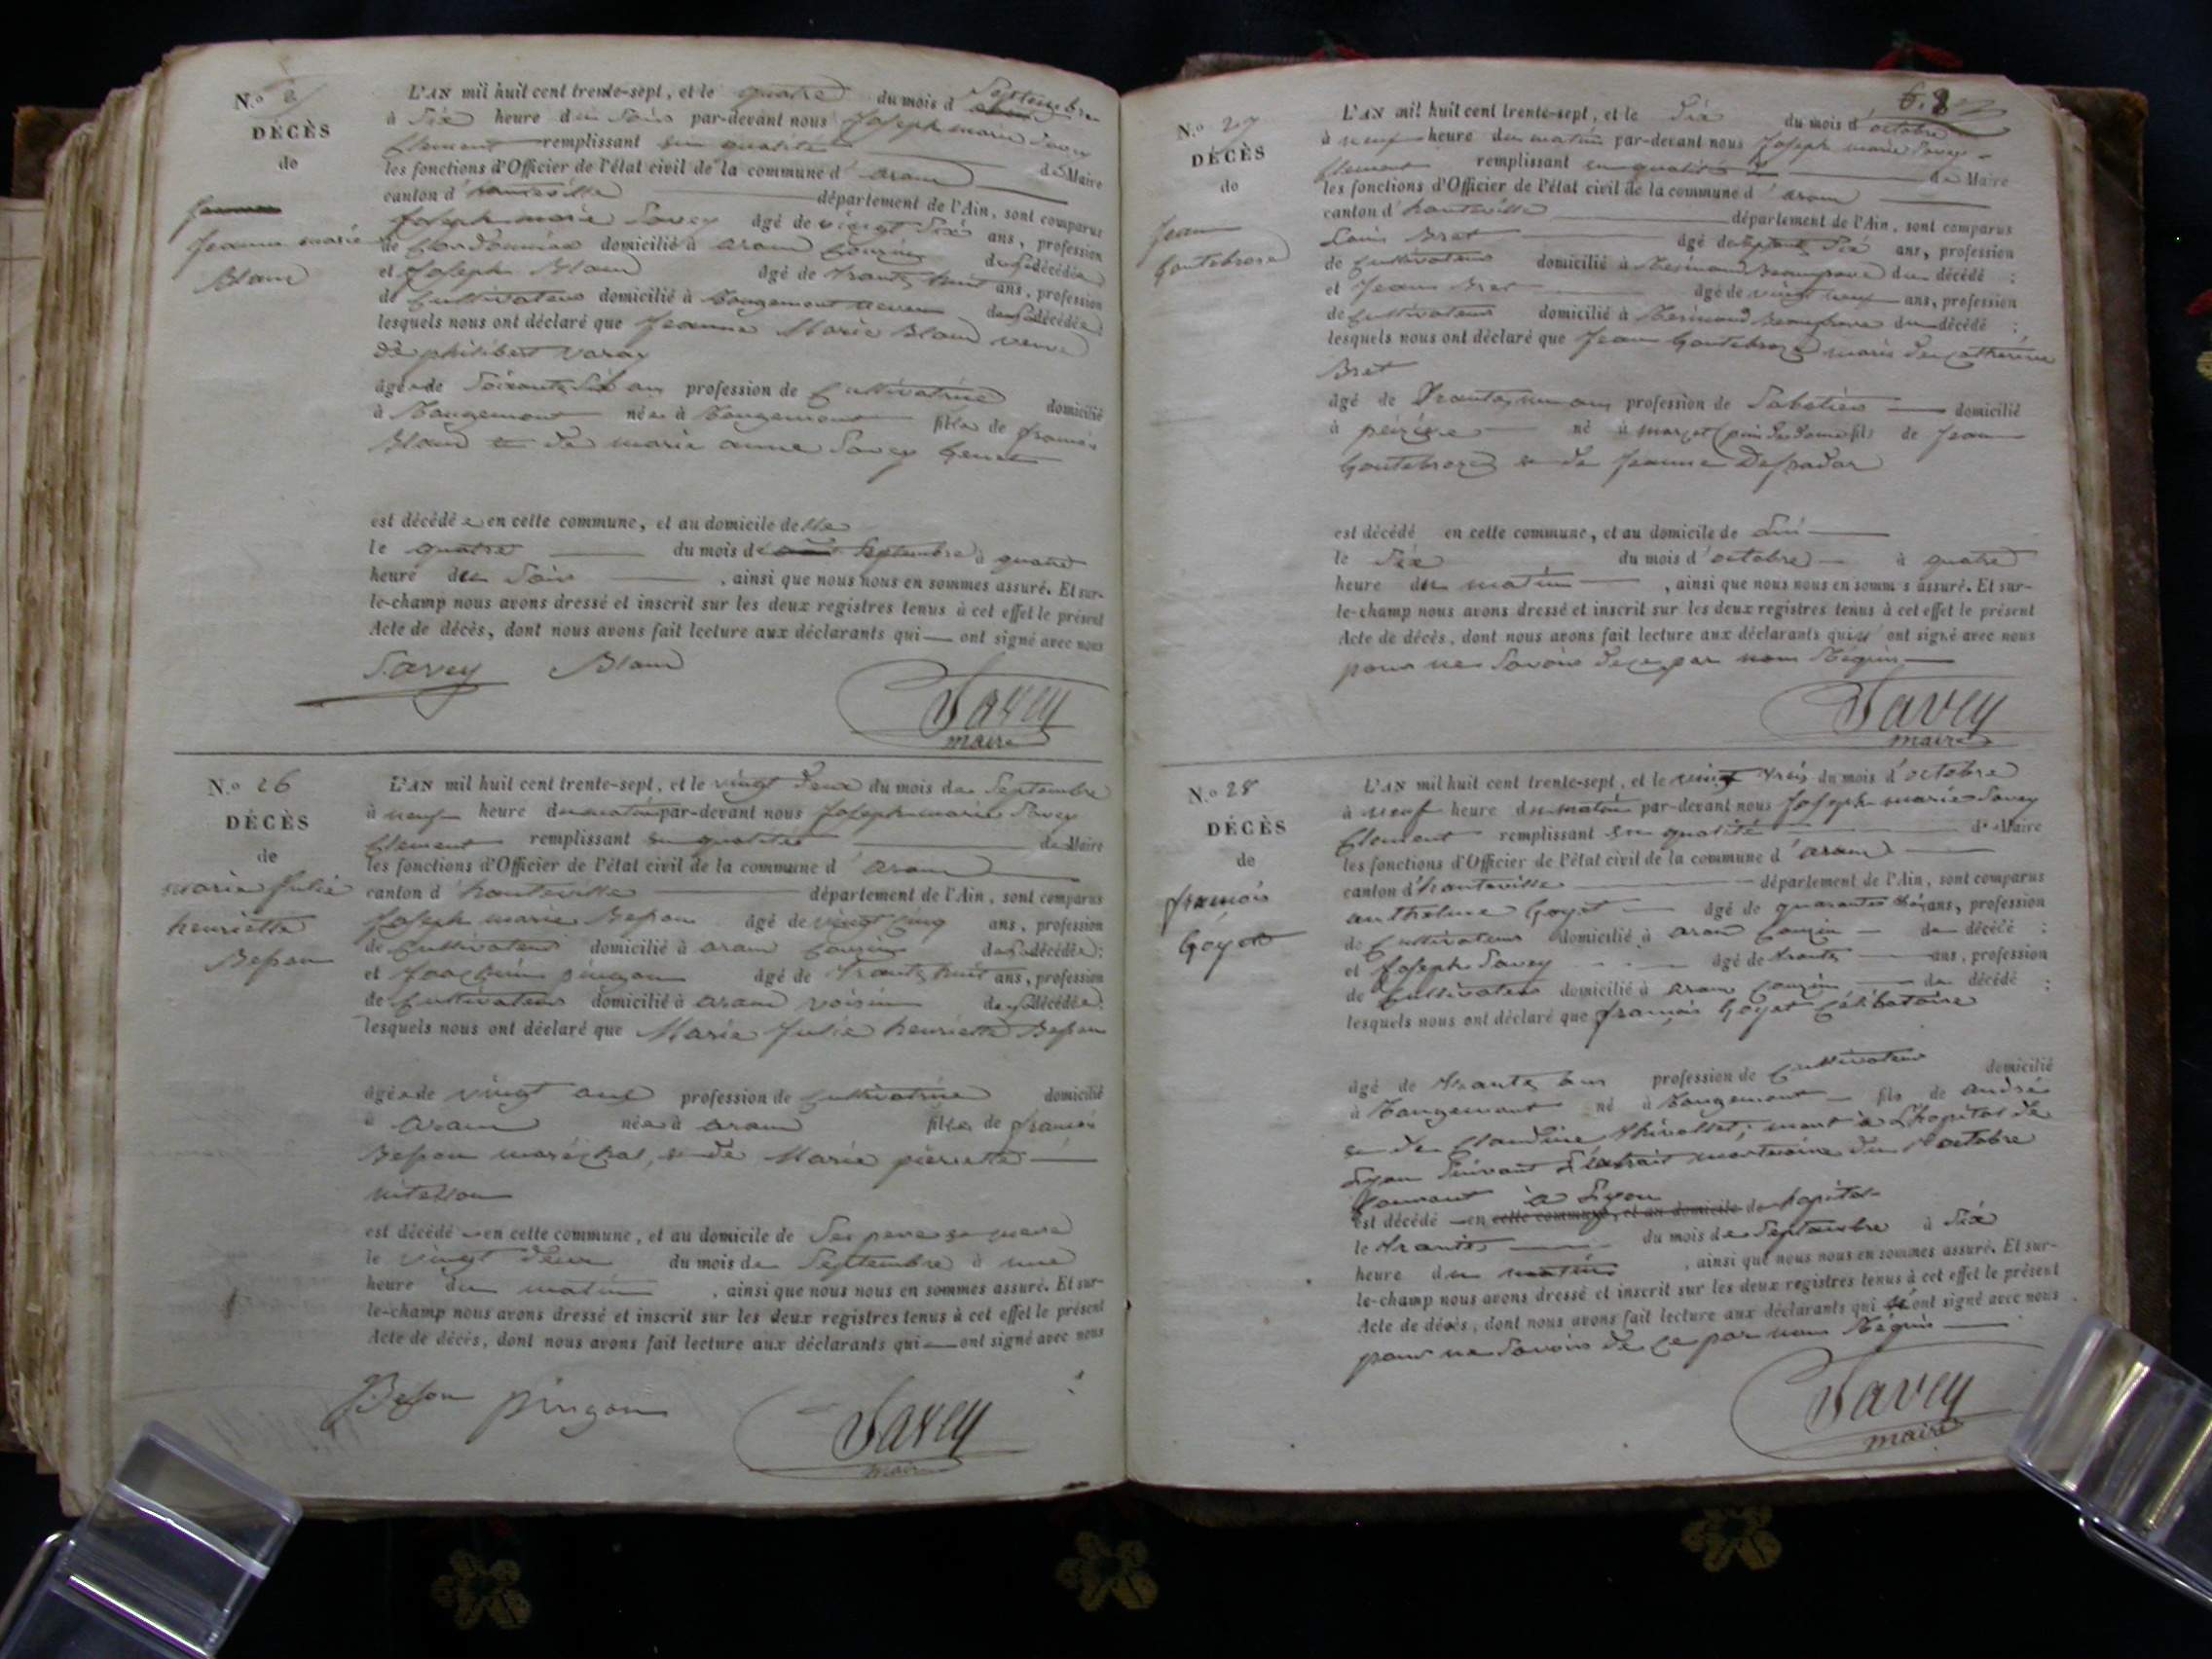 N.o 25
DÉCÈS
de
Jeanne marie
Blanc
L'AN mil huit cent trente-sept, et le quatre du mois d Septembre
à Six heure du Soir par-devant nous Joseph marie Savey
Clement remplissant en qualité de Maire
les fonctions d'Officier de l'état civil de la commune d' aranc
canton d' hauteville département de l'Ain, sont comparus
Joseph marie Savey âgé de vingt Six ans, profession
de domicilié à aranc Cousin de la décédée
et Joseph Blanc âgé de trante huit ans, profession
de Cultivateur domicilié à Rougemont neveu de la décédée
lesquels nous ont déclaré que Jeanne Marie Blanc veuve
de philibert Varay
âgée de Soixante Six ans profession de Cultivatrice domicilié
à Rougemont née à Rougemont fille de francois
Blanc et de marie anne Savey
est décédée en cette commune, et au domicile delle
le quatre du mois de Septembre à quatre
heure du Soir , ainsi que nous nous en sommes assuré. Et sur-
le-champ nous avons dressé et inscrit sur les deux registres tenus à cet effet le présent
Acte de décès, dont nous avons fait lecture aux déclarants qui ont signé avec nous
Savey Blanc
Savey
maire
N.o 26
DÉCÈS
de
marie Julie
henriette
Besson
L'AN mil huit cent trente-sept, et le vingt deux du mois de Septembre
à neuf heure du matin par-devant nous Joseph marie Savey
Clement remplissant en qualité de Maire
les fonctions d'Officier de l'état civil de la commune d' aranc
canton d' hauteville département de l'Ain, sont comparus
Joseph marie Besson âgé de vingt Cinq ans, profession
de Cultivateur domicilié à aranc Cousin de la décédée;
et Joachim pingon âgé de trante huit ans, profession
de Cultivateur domicilié à aranc voisin de la décédée;
lesquels nous ont déclaré que Marie Julie henriette Besson
âgée de vingt ans profession de Cultivatrice domicilié
à aranc née à aranc fille de francois
Besson maréchal, et de Marie pierrette
est décédé en cette commune, et au domicile de Ses pere et mere
le vingt deux du mois de Septembre à une
heure du matin , ainsi que nous nous en sommes assuré. Et sur-
le-champ nous avons dressé et inscrit sur les deux registres tenus à cet effet le présent
Acte de décès, dont nous avons fait lecture aux déclarants qui ont signé avec nous
Besson pingon
Savey
maire
N.o 27
DÉCÈS
de
Jean
Goutebroze
L'AN mil huit cent trente-sept, et le Six du mois d' octobre
à neuf heure du matin par-devant nous Joseph marie Savey
Clement remplissant en qualité de Maire
les fonctions d'Officier de l'état civil de la commune d' aranc
canton d' hauteville département de l'Ain, sont comparus
Louis Bret âgé de Septante Six ans, profession
de Cultivateur domicilié à Resinand Beaupere du décédé ;
et Jean Bret âgé de vingt neuf ans, profession
de Cultivateur domicilié à Resinand Beaufrere du décédé ;
lesquels nous ont déclaré que Jean Goutebroze marié de Catherine
Bret
âgé de Trante un ans profession de Sabotier domicilié
à né à (puis de dome) fils de Jean
Goutebroze et de Jeanne
est décédé en cette commune, et au domicile de Lui
le Six du mois d' octobre à quatre
heure du matin , ainsi que nous nous en sommes assuré. Et sur-
le-champ nous avons dressé et inscrit sur les deux registres tenus à cet effet le présent
Acte de décès, dont nous avons fait lecture aux déclarants qui n' ont signé avec nous
pour ne Savoir de ce par nous Réquis
Savey
maire
N.o 28
DÉCÈS
de
francois
Goyet
L'AN mil huit cent trente-sept, et le vingt trois du mois d' octobre
à neuf heure du matin par-devant nous Joseph marie Savey
Clement remplissant en qualité de Maire
les fonctions d'Officier de l'état civil de la commune d' aranc
canton d' hauteville département de l'Ain, sont comparus
anthelme Goyet âgé de quarante ans, profession
de Cultivateur domicilié à aranc Cousin du décédé ;
et Joseph Savey âgé de trante ans, profession
de Cultivateur domicilié à aranc Cousin du décédé ;
lesquels nous ont déclaré que francois Goyet Célibataire
âgé de trante ans profession de Cultivateur domicilié
à Rougemont né à Rougemont fils de andré
et de Claudine ; mort à L'hopital de
Lyon Suivant L'extrait mortuaire du octobre
Courant à Lyon
est décédé en cette commune, et au domicile de hopital
le trante du mois de Septembre à Six
heure du matin , ainsi que nous nous en sommes assuré. Et sur-
le-champ nous avons dressé et inscrit sur les deux registres tenus à cet effet le présent
Acte de décès, dont nous avons fait lecture aux déclarants qui n'ont signé avec nous
pour ne Savoir de ce par nous Réquis
Savey
maire